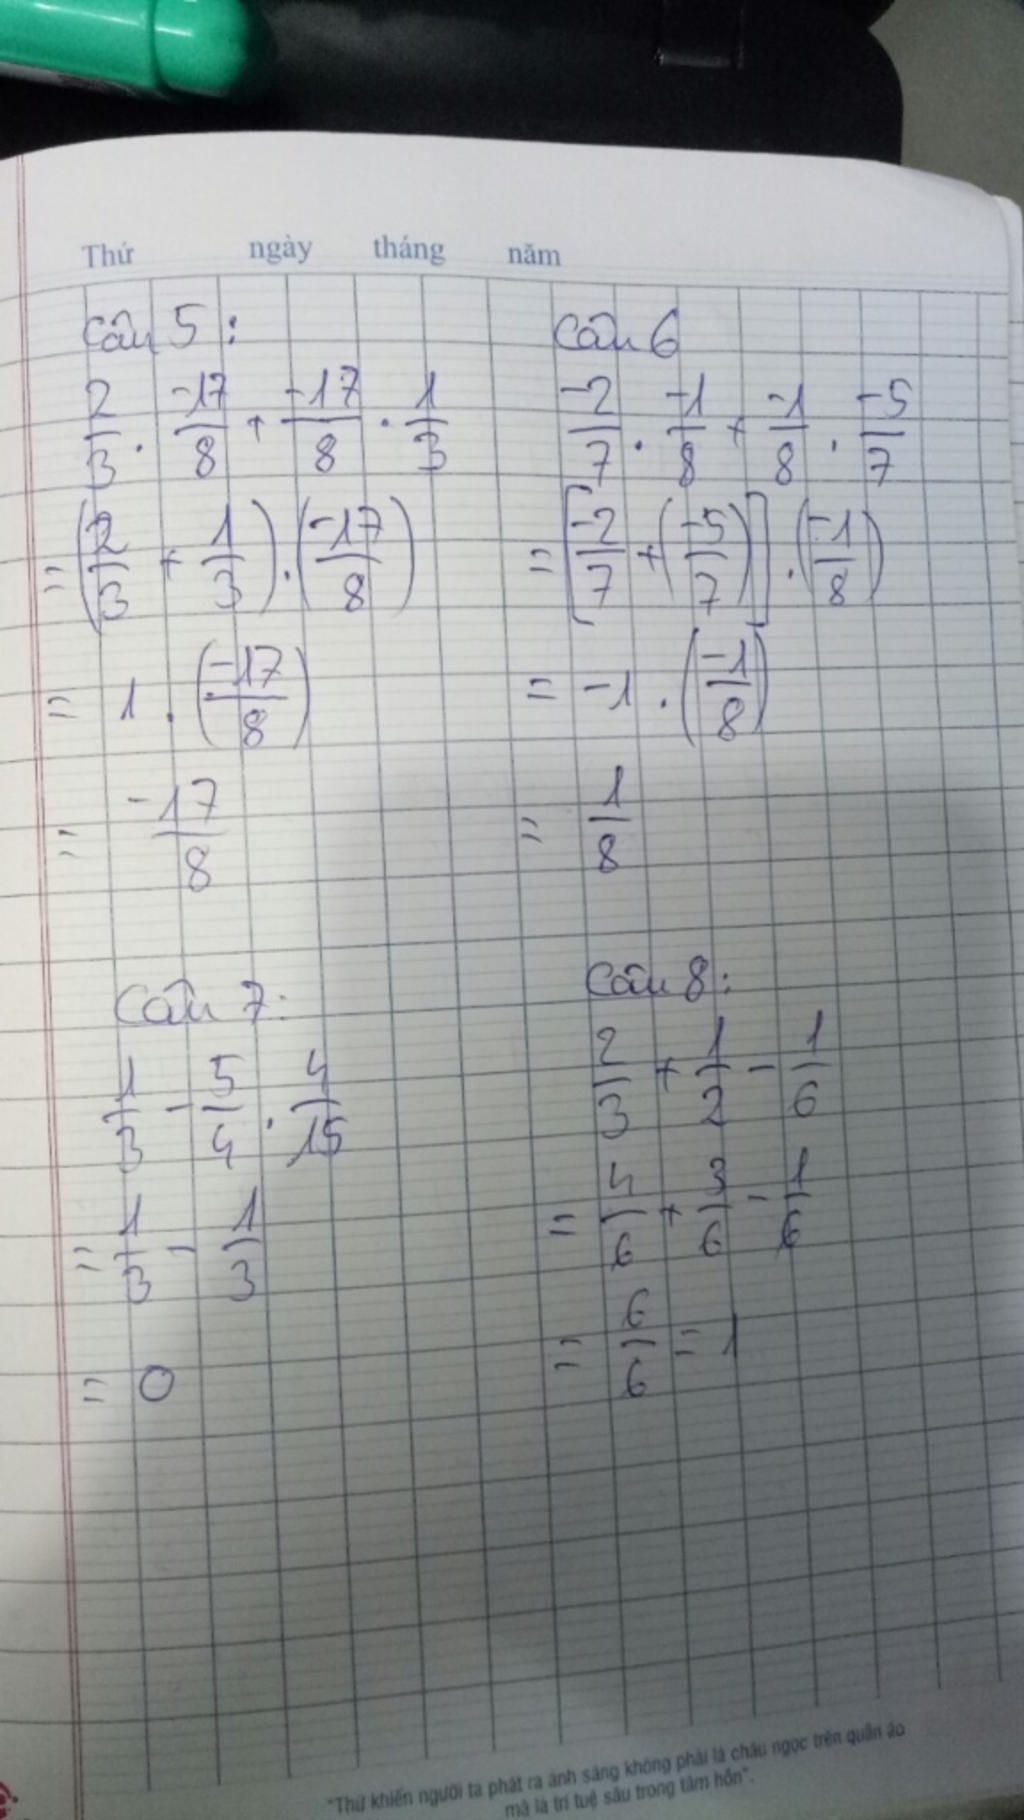 Thứ ngày tháng năm
Câu 5:
2/3 . -17/8 + -17/8 . 1/3
= (2/3 + 1/3) . (-17/8)
= 1 . (-17/8)
= -17/8
Câu 6
-2/7 . -1/8 + -1/8 . -5/7
= [-2/7 + (-5/7)] . (-1/8)
= -1 . (-1/8)
= 1/8
Câu 7:
1/3 - 5/4 . 4/15
= 1/3 - 1/3
= 0
Câu 8:
2/3 + 1/2 - 1/6
= 4/6 + 3/6 - 1/6
= 6/6 = 1
"Thứ khiến người ta phát ra ánh sáng không phải là châu ngọc trên quần áo
mà là trí tuệ sâu trong tâm hồn".